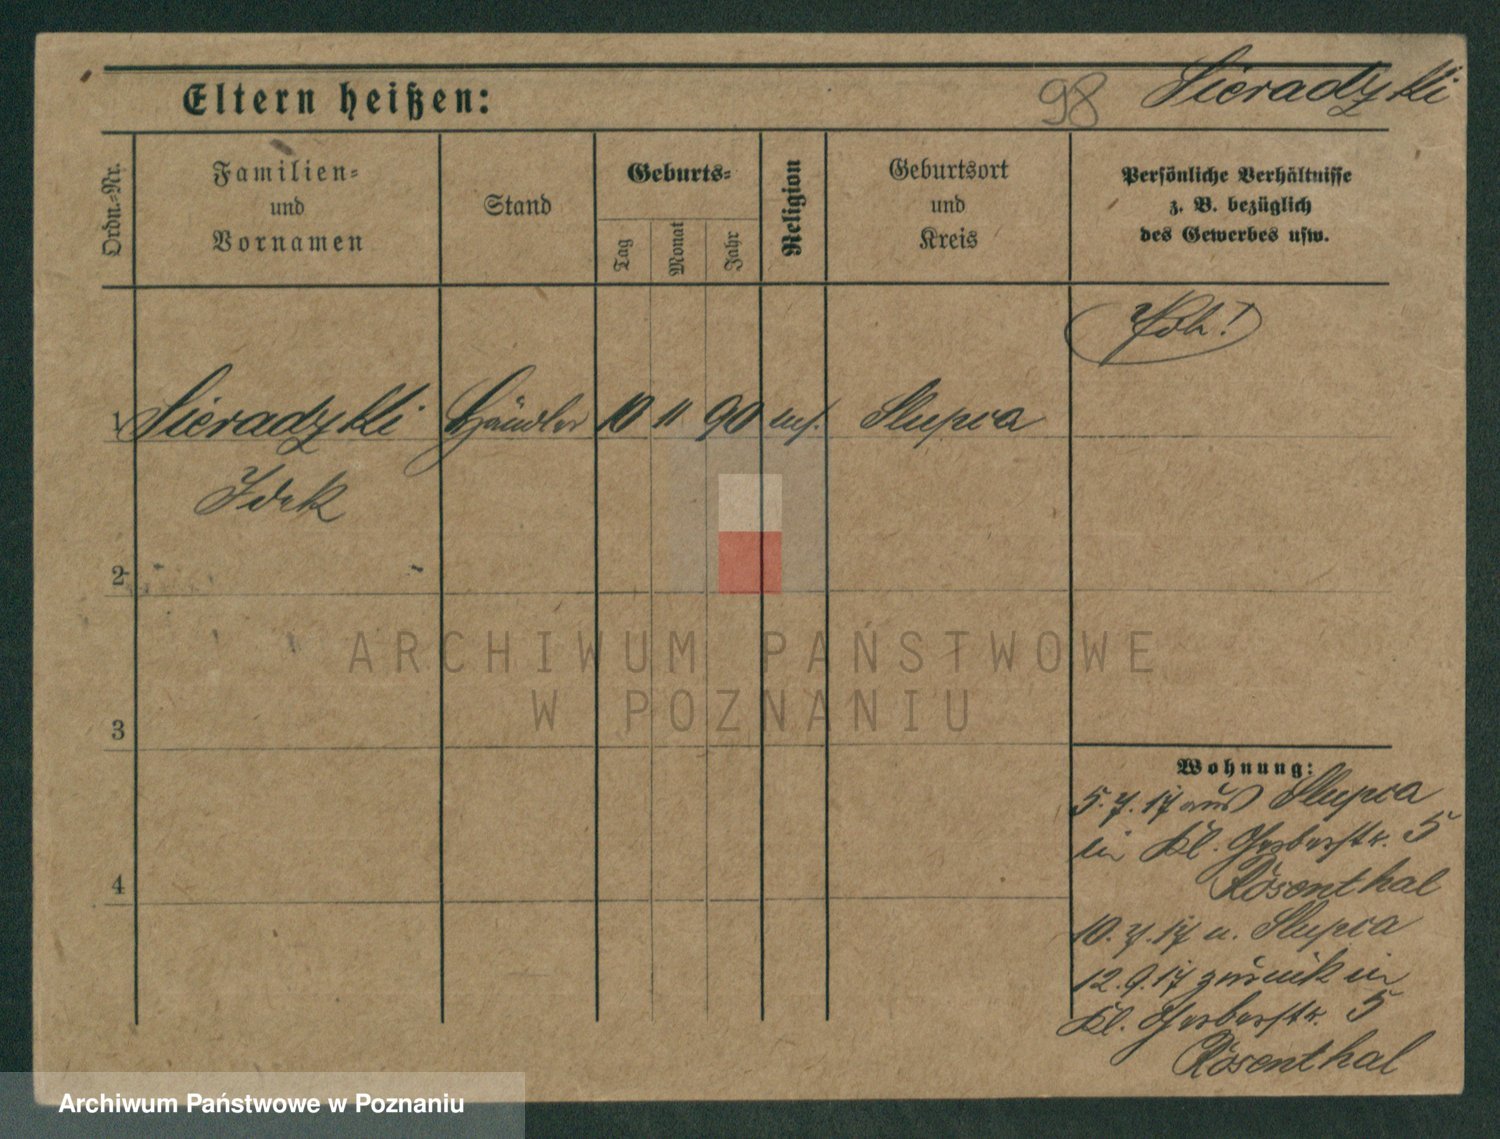 Eltern heißen:
98 Sieradzki
Ordn.-Nr.
Familien-
und
Vornamen
Stand
Geburts-
Tag
Monat
Jahr
Religion
Geburtsort
und
Kreis
Persönliche Verhältnisse
z. B. bezüglich
des Gewerbes usw.
1 Sieradzki Händler 10 11 90 Slupca
Idek
2
3
4
Wohnung:
5.7.17 aus Slupca
in Kl. Gerberstr. 5
Rosenthal
10.7.17 n. Slupca
12.9.17 zurück in
Kl. Gerberstr. 5
Rosenthal
ARCHIWUM PAŃSTWOWE
W POZNANIU
Archiwum Państwowe w Poznaniu